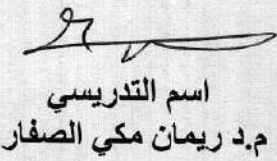 اسم التدريسي
م.د ريمان مكي الصفار